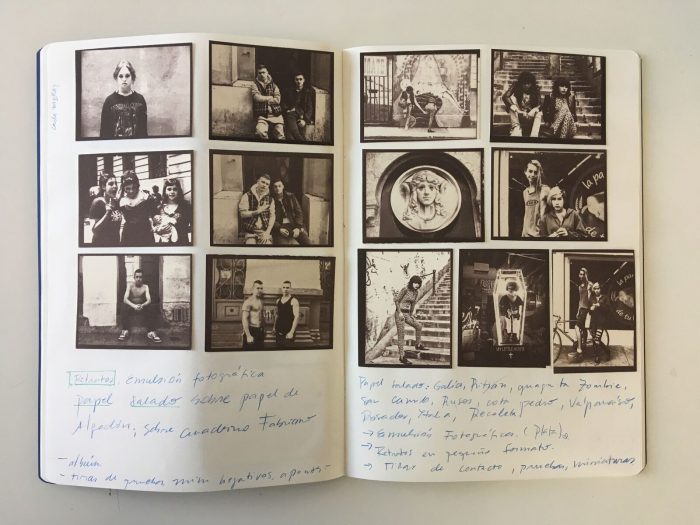 Retratos. Emulsión fotográfica
papel salado sobre papel de
Algodón, sobre cuaderno Fabriano
- album
- tiras de pruebas mini negativos, apuntes -
Papel salado: Galia, guagua Zombie,
San Camilo, Rusos, cota pedro, Valparaíso,
Rosados, Italia, Recoleta.
→ Emulsión Fotográfica. (Plata).
→ Retratos en pequeño formato.
→ Tiras de contacto, pruebas, miniaturas
la pa
de